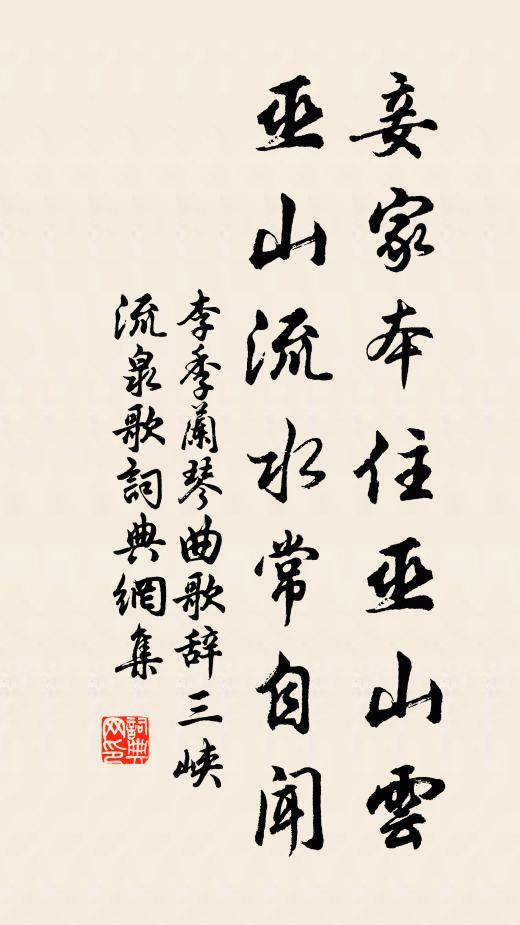 妾家本住巫山雲
巫山流水常自聞
李季蘭琴曲歌辞三峡
流泉歌詞典網集
詞典
网印